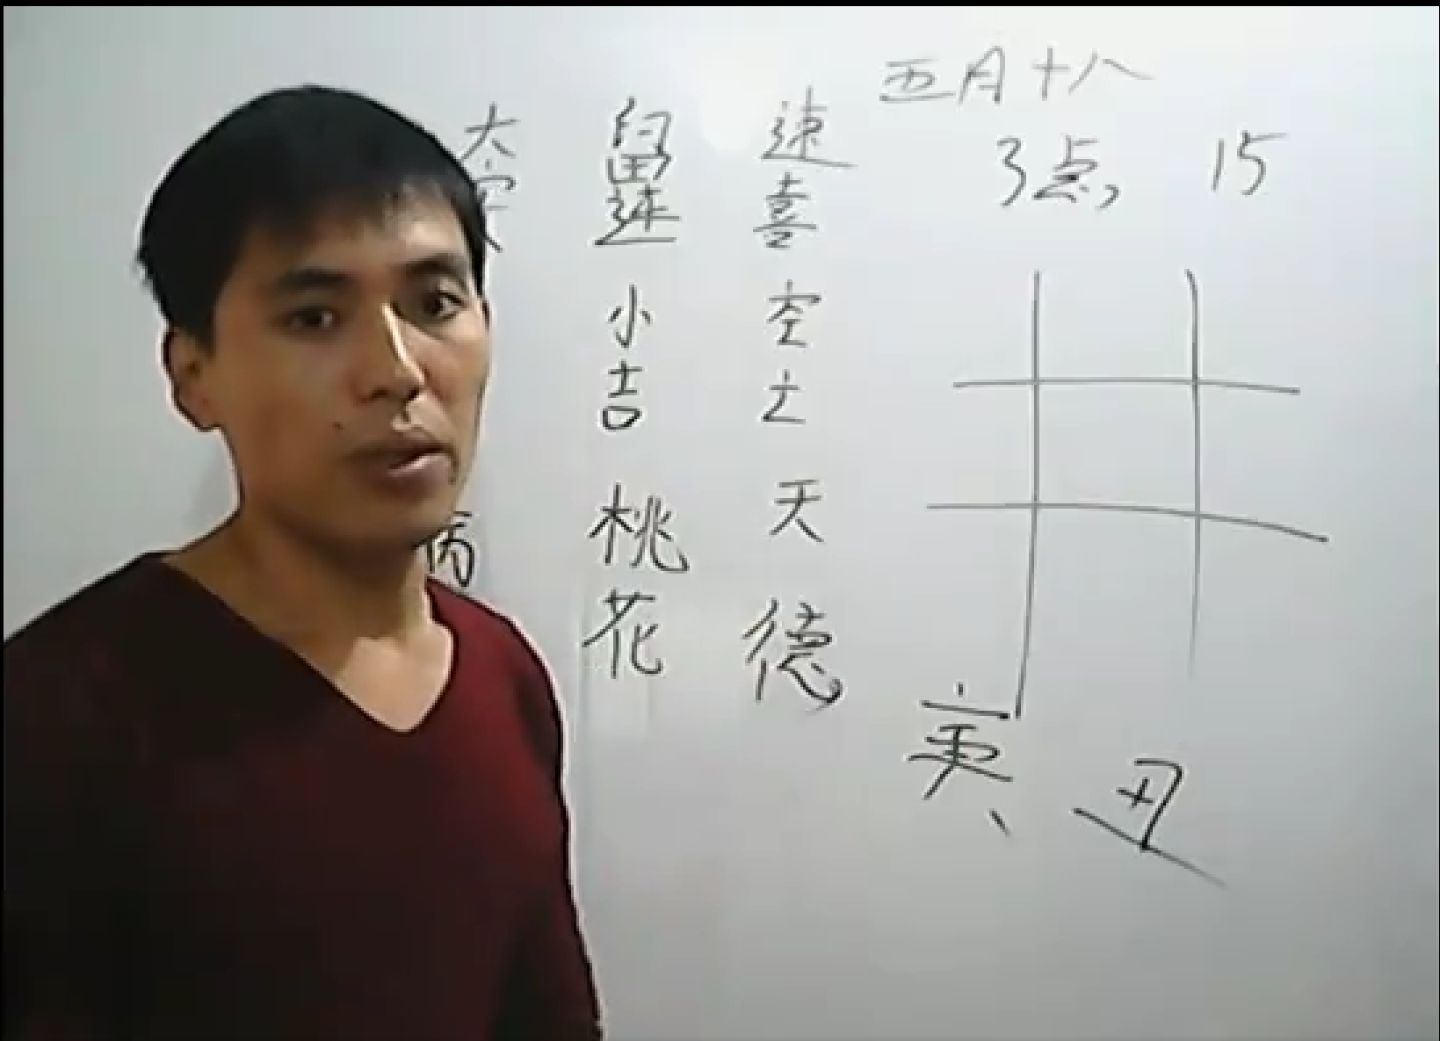 五月十八
3点 15
大安 留连 速喜
小吉 空亡
病 桃花 天德
寅 丑